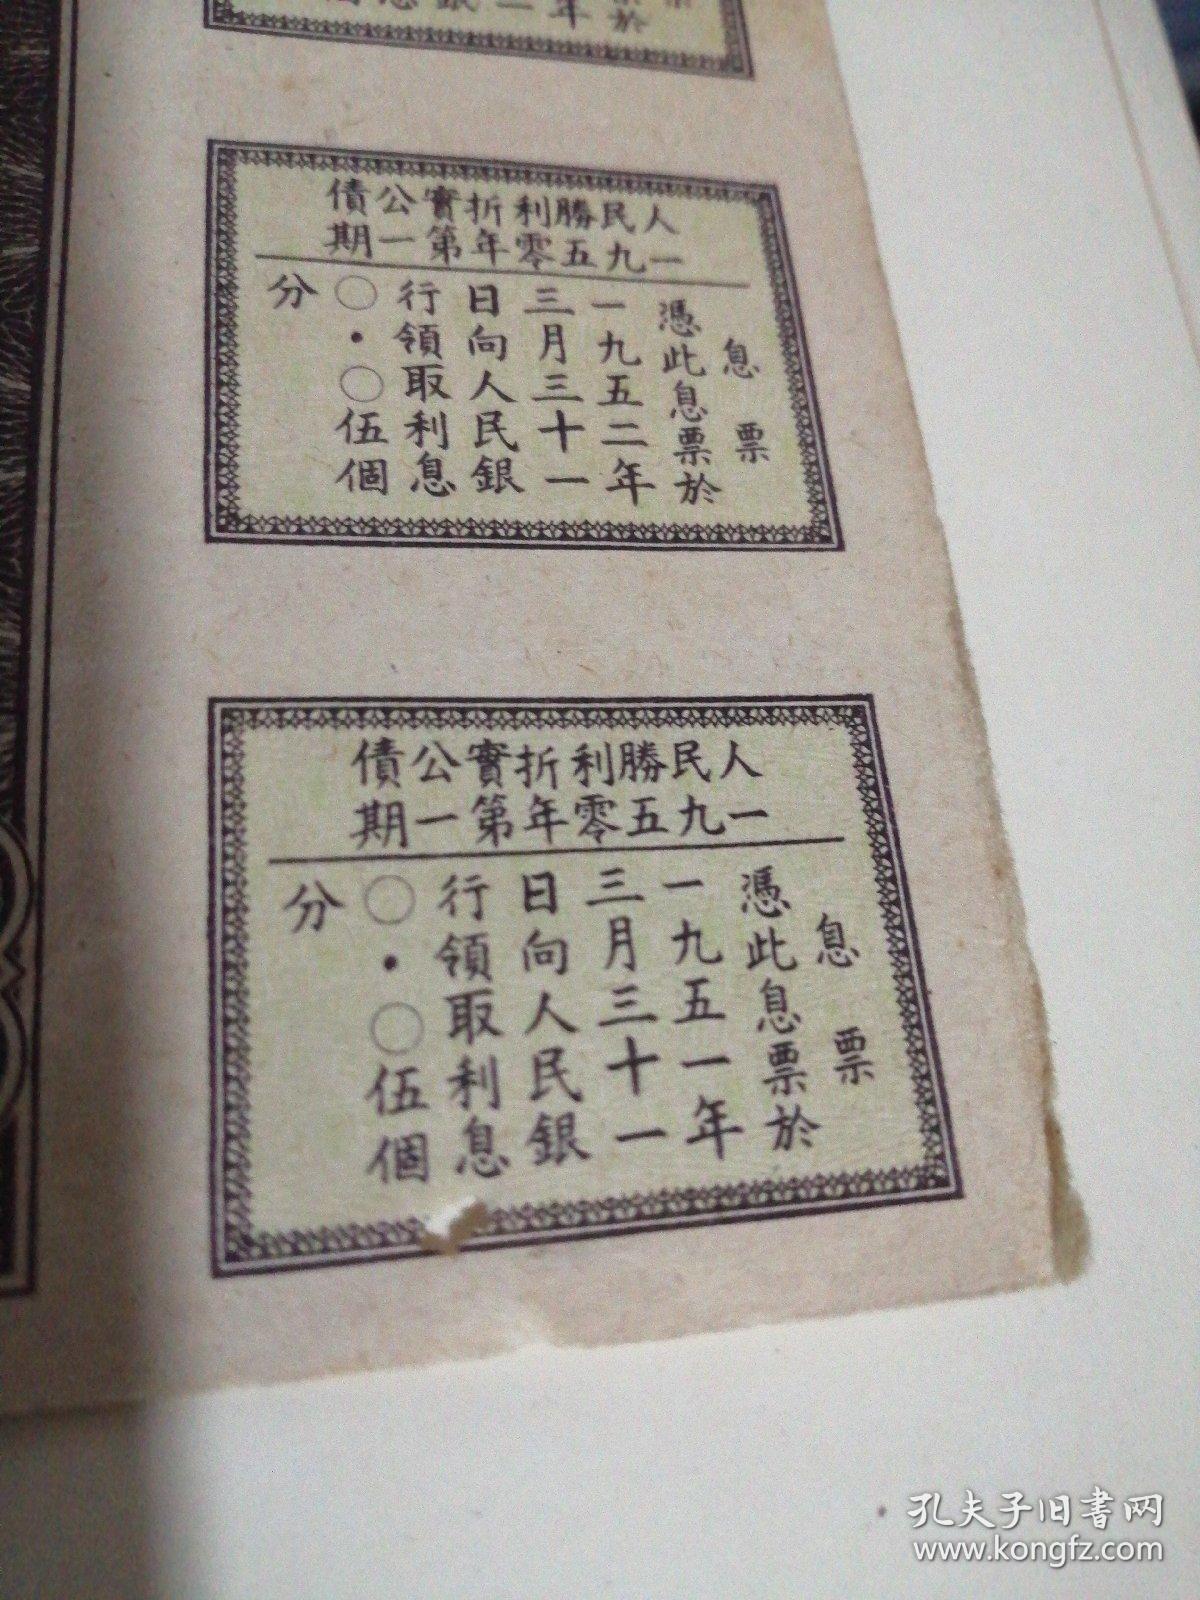 年二銀息個
於
人民勝利折實公債
一九五零年第一期
息票
憑此息票於
一九五二年
三月三十一
日向人民銀
行領取利息
〇·〇伍個
分
人民勝利折實公債
一九五零年第一期
息票
憑此息票於
一九五一年
三月三十一
日向人民銀
行領取利息
〇·〇伍個
分
孔夫子旧書网
www.kongfz.com